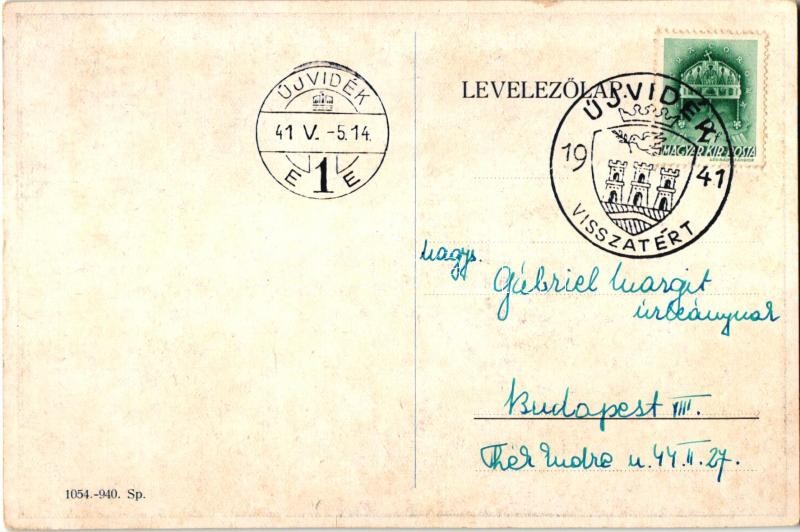 LEVELEZŐLAP.
MAGYAR KIR. POSTA
ÚJVIDÉK
41 V. -5.14.
E 1 E
ÚJVIDÉK
19 41
VISSZATÉRT
Nagys.
Gábriel Margit
úrleánynak
Budapest VIII.
Thék Endre u. 44. II. 27.
1054.-940. Sp.